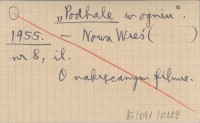 „Podhale w ogniu".
1955. – Nowa Wieś (      )
nr 8, il.
O nakręcanym filmie.